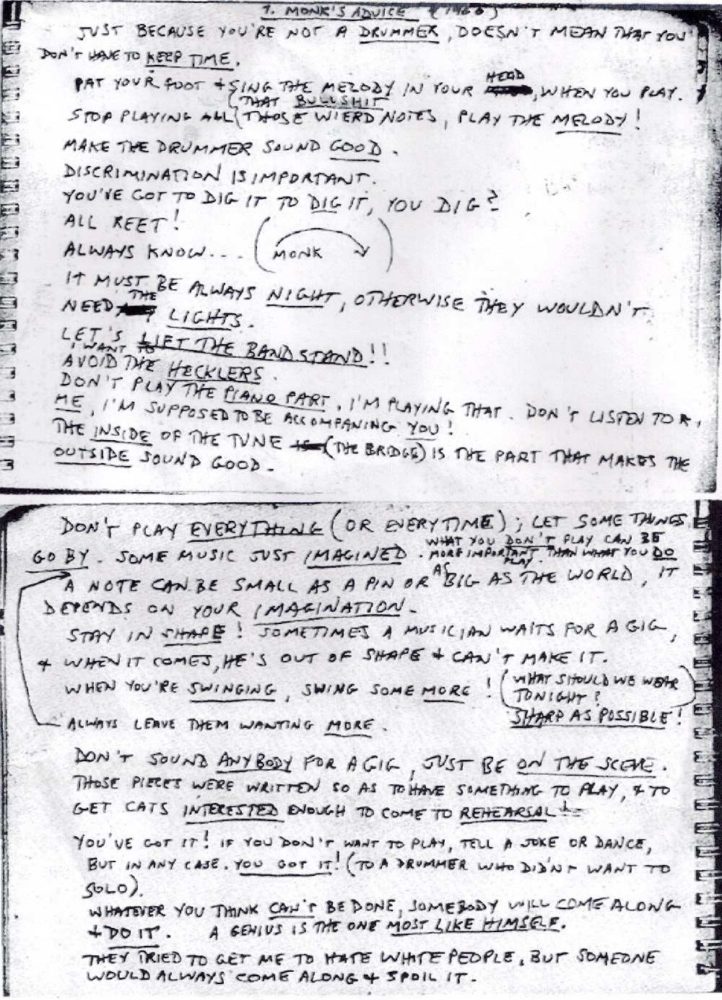 1. MONK'S ADVICE (1960)
JUST BECAUSE YOU'RE NOT A DRUMMER, DOESN'T MEAN THAT YOU
DON'T HAVE TO KEEP TIME.
PAT YOUR FOOT + SING THE MELODY IN YOUR HEAD, WHEN YOU PLAY.
STOP PLAYING ALL (THAT BULLSHIT
THOSE WIERD NOTES, PLAY THE MELODY!
MAKE THE DRUMMER SOUND GOOD.
DISCRIMINATION IS IMPORTANT.
YOU'VE GOT TO DIG IT TO DIG IT, YOU DIG?
ALL REET!
ALWAYS KNOW... (MONK)
IT MUST BE ALWAYS NIGHT, OTHERWISE THEY WOULDN'T
NEED THE LIGHTS.
LET'S LIFT THE BANDSTAND!!
I WANT TO
AVOID THE HECKLERS.
DON'T PLAY THE PIANO PART, I'M PLAYING THAT. DON'T LISTEN TO
ME, I'M SUPPOSED TO BE ACCOMPANING YOU!
THE INSIDE OF THE TUNE (THE BRIDGE) IS THE PART THAT MAKES THE
OUTSIDE SOUND GOOD.
DON'T PLAY EVERYTHING (OR EVERYTIME); LET SOME THINGS
GO BY. SOME MUSIC JUST IMAGINED.
WHAT YOU DON'T PLAY CAN BE
MORE IMPORTANT THAN WHAT YOU DO
PLAY.
A NOTE CAN BE SMALL AS A PIN OR AS BIG AS THE WORLD, IT
DEPENDS ON YOUR IMAGINATION.
STAY IN SHAPE! SOMETIMES A MUSICIAN WAITS FOR A GIG,
+ WHEN IT COMES, HE'S OUT OF SHAPE + CAN'T MAKE IT.
WHEN YOU'RE SWINGING, SWING SOME MORE!
(WHAT SHOULD WE WEAR
TONIGHT?
SHARP AS POSSIBLE!)
ALWAYS LEAVE THEM WANTING MORE.
DON'T SOUND ANYBODY FOR A GIG, JUST BE ON THE SCENE.
THOSE PIECES WERE WRITTEN SO AS TO HAVE SOMETHING TO PLAY, + TO
GET CATS INTERESTED ENOUGH TO COME TO REHEARSAL!
YOU'VE GOT IT! IF YOU DON'T WANT TO PLAY, TELL A JOKE OR DANCE,
BUT IN ANY CASE, YOU GOT IT! (TO A DRUMMER WHO DIDN'T WANT TO
SOLO).
WHATEVER YOU THINK CAN'T BE DONE, SOMEBODY WILL COME ALONG
+ DO IT. A GENIUS IS THE ONE MOST LIKE HIMSELF.
THEY TRIED TO GET ME TO HATE WHITE PEOPLE, BUT SOMEONE
WOULD ALWAYS COME ALONG + SPOIL IT.